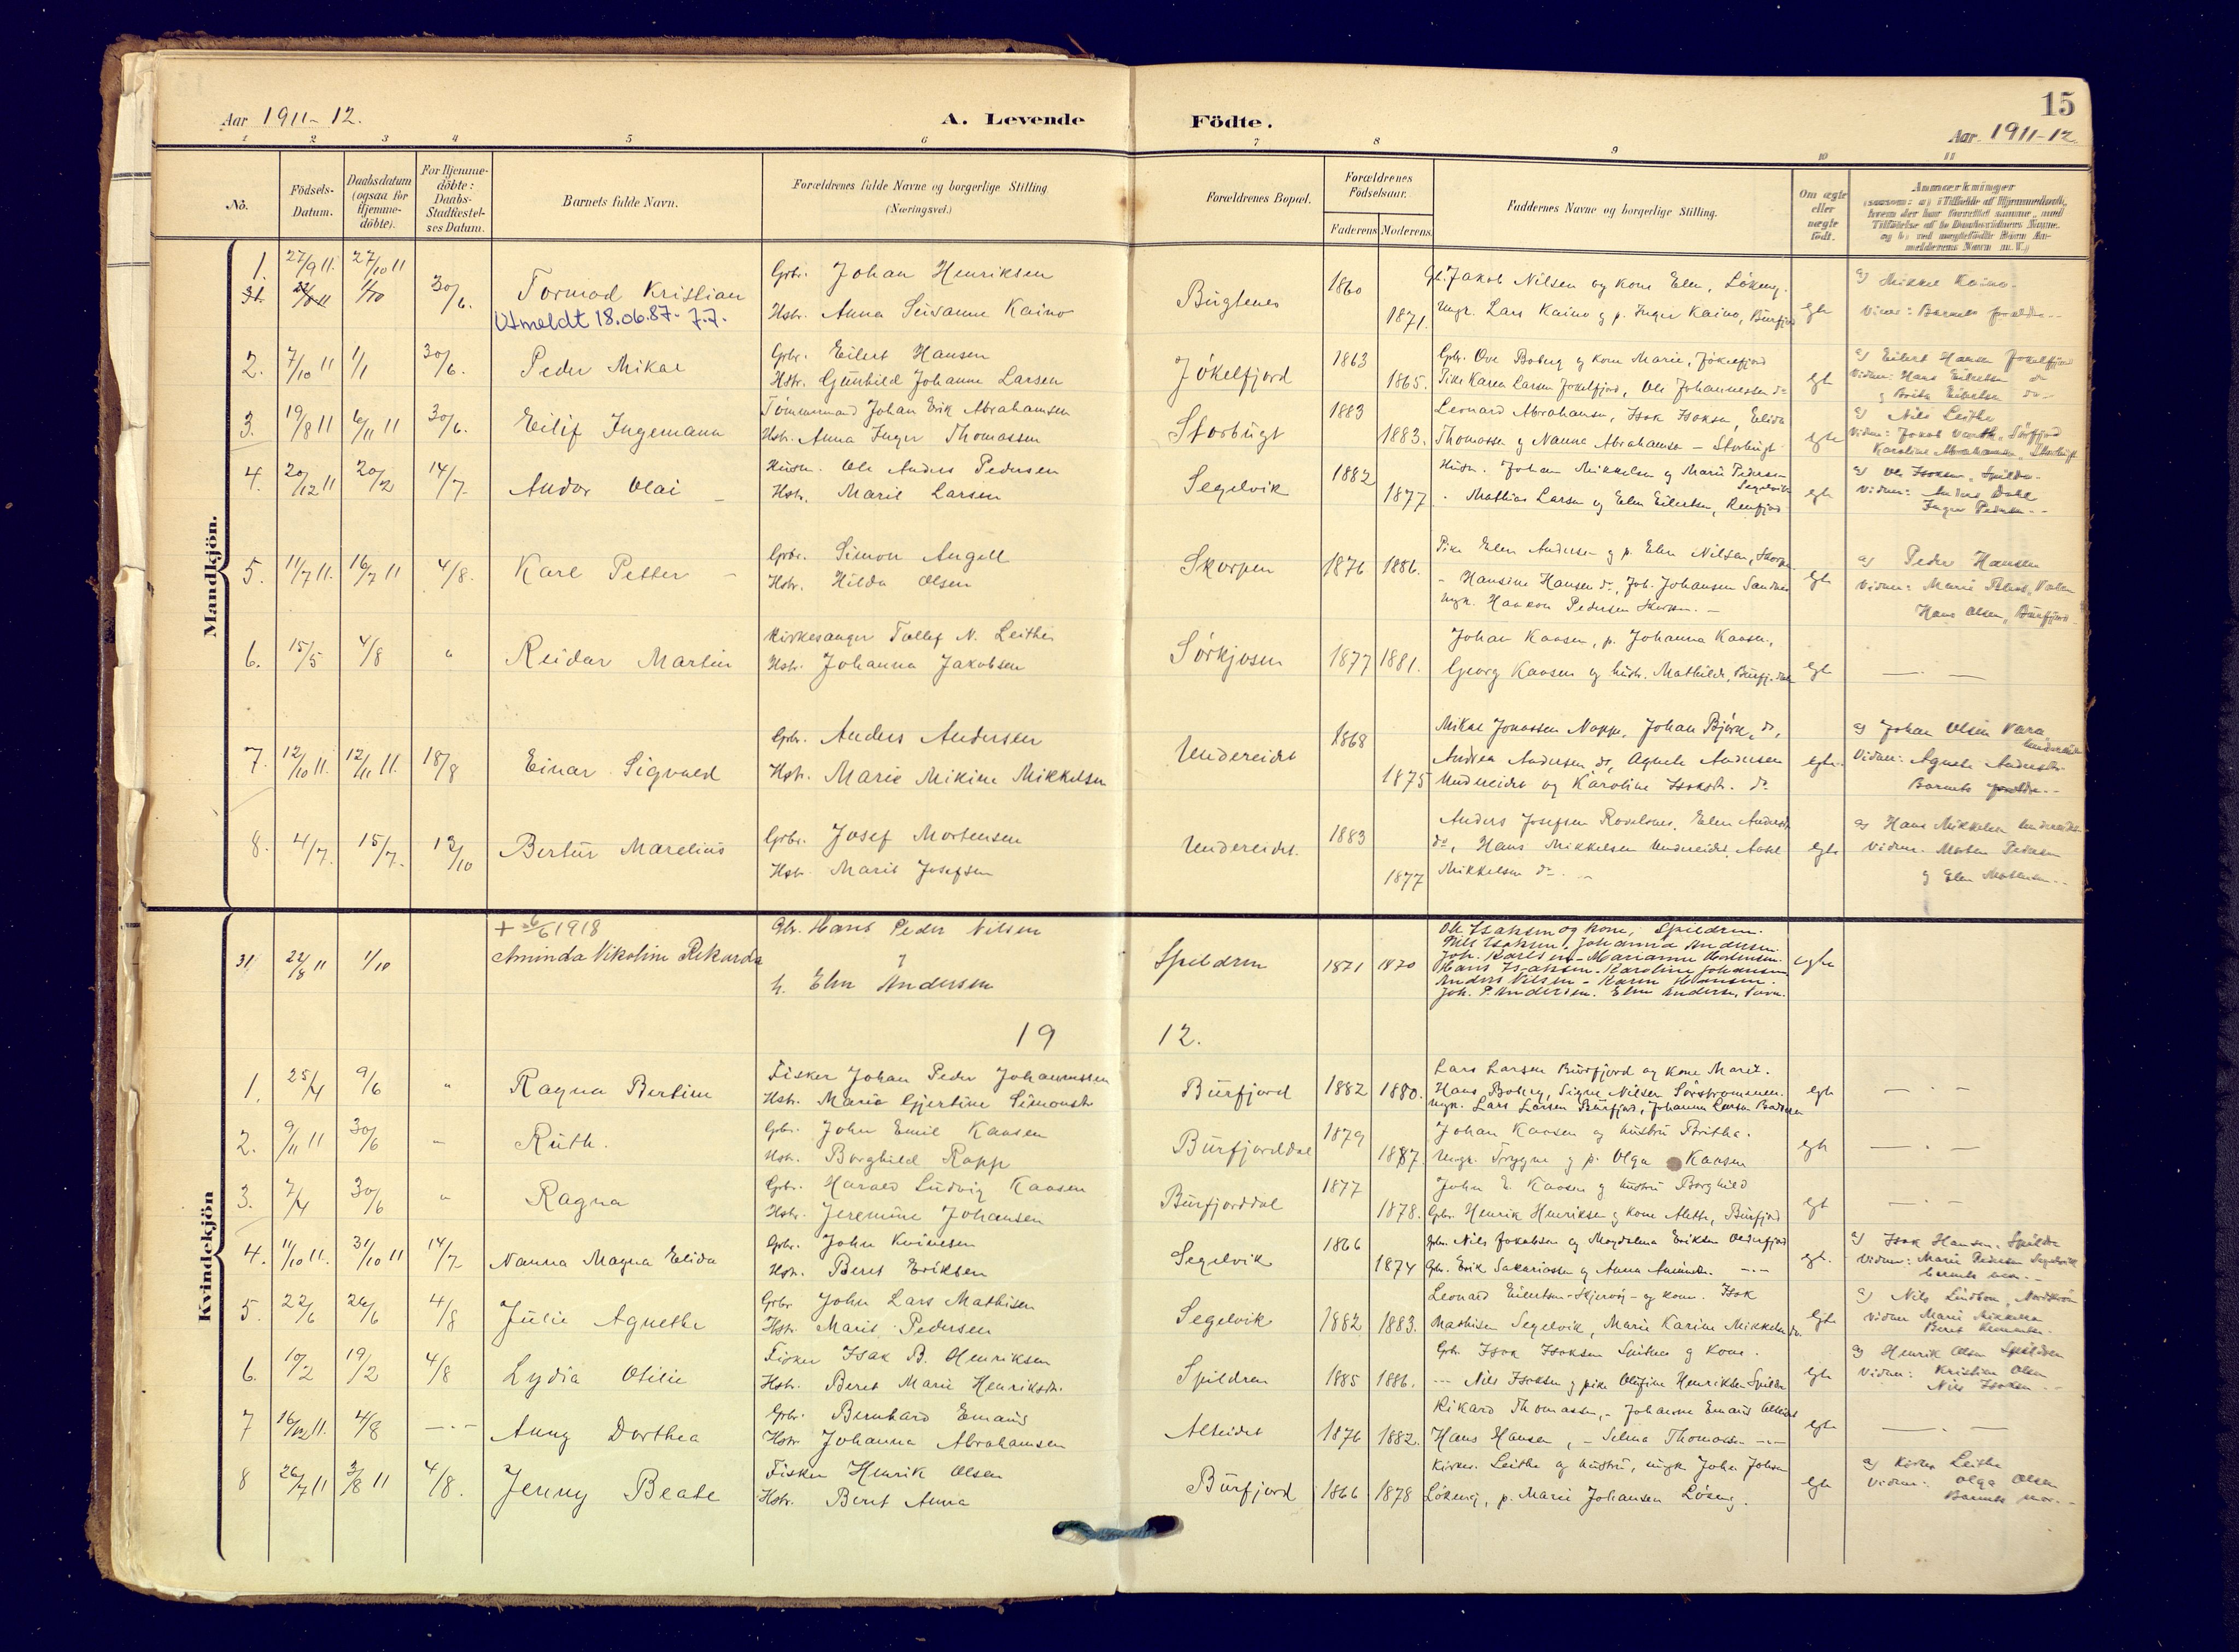 15
Aar 1911-12.
A. Levende Födte.
Aar 1911-12.
1 2 3 4 5 6 7 8 9 10 11
No.
Födsels-Datum.
Daabsdatum (ogsaa for Hjemme-döbte).
For Hjemme-döbte: Daabs-Stadfæstel-ses Datum.
Barnets fulde Navn.
Forældrenes fulde Navne og borgerlige Stilling (Næringsvei.)
Forældrenes Bopæl.
Forældrenes Födselsaar.
Faderens Moderens
Faddernes Navne og borgerlige Stilling.
Om ægte eller uægte født.
Anmærkninger
Mandkjön.
1. 27/9 11. 27/10 11 30/6. Tormod Kristian
Utmeldt 18.06.87- J.J.
Gbr. Johan Henriksen
Hstr. Anna Susanne Kaino
Bugtenes 1860 1871.
Gb. Jakob Nilsen og kone Elen, Lökeng.
Ungr. Lars Kaino og p. Inger Kaino, Burfjord
egte
a) Mikkel Kaino
Vidner: Barnets forældre
2. 7/10 11 1/1 30/6. Peder Mikal
Gbr. Eilert Hansen
Hstr. Gunhild Johanne Larsen
Jökelfjord 1863 1865.
Gbr. Ove Boberg og kone Marie, Jökelfjord
Pike Karen Larsen Jökelfjord, Ole Johannessen do
egte
a) Eilert Hansen Jökelfjord
Vidner: Hans Eilertsen do
og Berit Eilertsen do
3. 19/8 11 6/11 11 30/6. Eilif Ingemann
Tömmermand Johan Erik Abrahamsen
Hstr. Anna Inger Thomassen
Storbugt 1883 1883.
Leonard Abrahamsen, Isak Isaksen, Elida
Thomassen og Nanna Abrahamsen - Storbugt
egte
a) Nils Leithe
Karoline Abrahamsen, Storbugt
4. 20/12 11 20/2 14/7 Andor Olai
Ole Anders Pedersen
Hstr. Marit Larsen
Segelvik 1882 1877
Johan Mikkelsen og Marie Pedersen Segelvik
Mathias Larsen og Elen Eilertsen, Reinfjord
egte
a) Ole Isaksen, Spildra
Vidner: Anders Dahl
Inger Pedersen
5. 11/7 11. 16/7 11 4/8. Karl Petter
Gbr. Simon Angell
Hstr. Hilda Olsen
Skorpen 1876 1886.
Pike Elen Andersen og p. Elen Nilsen, Skorpen
- Hansine Hansen do, Joh. Johansen Sandnes
ungk. Haakon Pedersen Skorpen.
egte
a) Peder Hansen
Hans Olsen, Burfjord
6. 15/5 4/8 " Reidar Martin
Kirkesanger Tollef N. Leithe
Hstr. Johanna Jakobsen
Sörkjosen 1877 1881.
Johan Kaasen, p. Johanna Kaasen,
Georg Kaasen og hustr. Mathilde, Burfj.dalen
egte
7. 12/10 11. 12/11 11. 18/8 Einar Sigvald
Gbr. Anders Andersen
Hstr. Marie Mikine Mikkelsen
Undereidet 1868 1875
Mikal Jonassen Nappe, Johan Björk, do,
Andrea Andersen do, Agnete Andersen
Undereidet og Karoline Isaksdr. do
egte
a) Johan Olsen Vara Undereidet
Vidner: Agnete Andersen
Barnets forældre
8. 4/7. 15/7. 13/10 Bertin Marelius
Gbr. Josef Mortensen
Hstr. Marit Josefsen
Undereidet. 1883 1877
Anders Josefsen Ravelsnes, Elen Andersdr
do, Hans Mikkelsen Undereidet,
Mikkelsen do
egte
a) Hans Mikkelsen Undereidet
Vidner. Morten Pedersen
og Elen Mortensen
Kvindekjön
31. 22/8 11 1/10
+ 26/6 1918
Aminda Nikoline Rikarda
Gbr. Hans Peder Nilsen
h. Elen Andersen
Spildren 1871 1870
Ole Isaksen og kone, Spildren.
Nils Isaksen. Johanna Andersen.
Joh. Karlsen - Marianne Mortensen.
Hans Isaksen. Karoline Johansen
Anders Nilsen - Karen Hansen.
Joh. P. Andersen. Elen Andersen,
egte
1912.
1. 25/4 9/6 " Ragna Bertine
Fisker Johan Peder Johannessen
Hstr. Marie Gjertine Simonsdr
Burfjord 1882 1880.
Lars Larsen Burfjord og kone Marit.
Hans Boberg, Signe Nilsen Sörströmmen.
ungk. Lars Larsen Burfjord, Johanna Larsen
egte
2. 9/11 11 30/6 Ruth.
Gbr. John Emil Kaasen
Hstr. Borghild Rapp
Burfjorddal 1879 1887.
Johan Kaasen og hustru Britha.
Ungk. Trygve og p. Olga Kaasen
egte
3. 7/4 30/6 " Ragna
Gbr. Harald Ludvig Kaasen
Hstr. Jeremine Johansen
Burfjorddal 1877 1878.
John E. Kaasen og hustru Borghild
Gbr. Henrik Henriksen og kone Alette, Burfjord
egte
4. 11/10 11. 31/10 11 14/7 Nanna Magna Elida
Gbr. John Kvivesen
Hstr. Beret Eriksen
Segelvik 1866 1874
Gbr. Nils Jakobsen og Magdalena Eriksen Olderfjord
Gbr. Erik Sakariassen og Anna
egte
a) Isak Hansen, Spildra
Vidner: Marie Pedersen Segelvik
5. 22/6 26/6 4/8 Julie Agnethe
Gbr John Lars Mathisen
Hstr. Marit Pedersen
Segelvik 1882 1883.
Leonard Eilertsen - Skjervöy - og kone. Isak
Mathisen Segelvik, Marie Karine Mikkelsen do.
egte
a) Nils Lindbom,
Vidner Marie Mikkelsen
6. 10/2 19/2 4/8 Lydia Otilie
Fisker Isak B. Henriksen
Hstr. Beret Marie Henriksdr.
Spildren 1885 1886.
Gbr. Isak Isaksen Spildren og kone.
Nils Isaksen og pike Olufine Henriksen Spildre
egte
a) Henrik Olsen Spildren
Vidner: Kristian Olsen
Nils Isaksen
7 16/12 11. 4/8 Anny Dorthea
Gbr. Bernhard Emaus
Hstr Johanna Abrahamsen
Alteidet 1876 1882.
Rikard Thomassen, - Johanne Emaus Alteidet
Hans Hansen, - Selma Thomassen
egte
8 26/7 11 3/8 11 4/8. Jenny Beate
Fisker Henrik Olsen
Hstr. Beret Anna
Burfjord 1866 1878
Kirkes. Leithe og hustru, ungk. John Johnsen
Lökeng, p. Marie Johansen Löseng.
egte
a) Kirkes Leithe
Vidner: Olga Olsen
Barnets mor